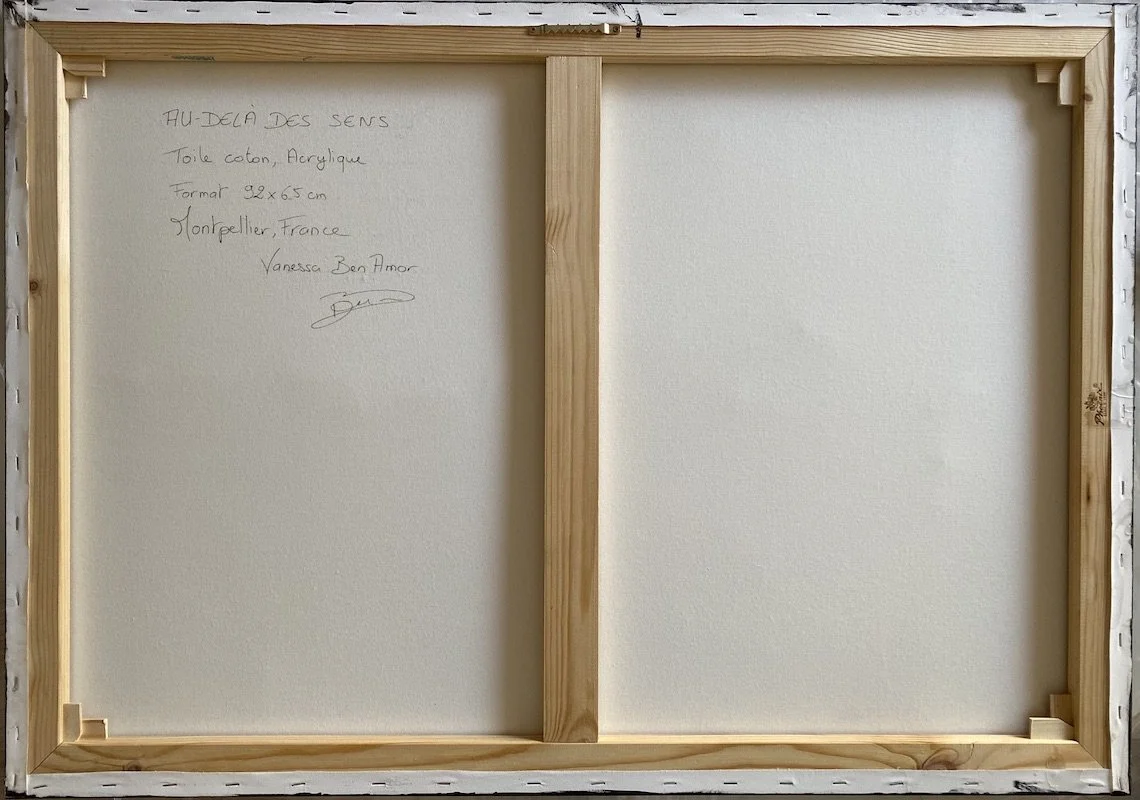 AU-DELÀ DES SENS
Toile coton, Acrylique
Format 92x65 cm
Montpellier, France
Vanessa Ben Amor
Phoenix